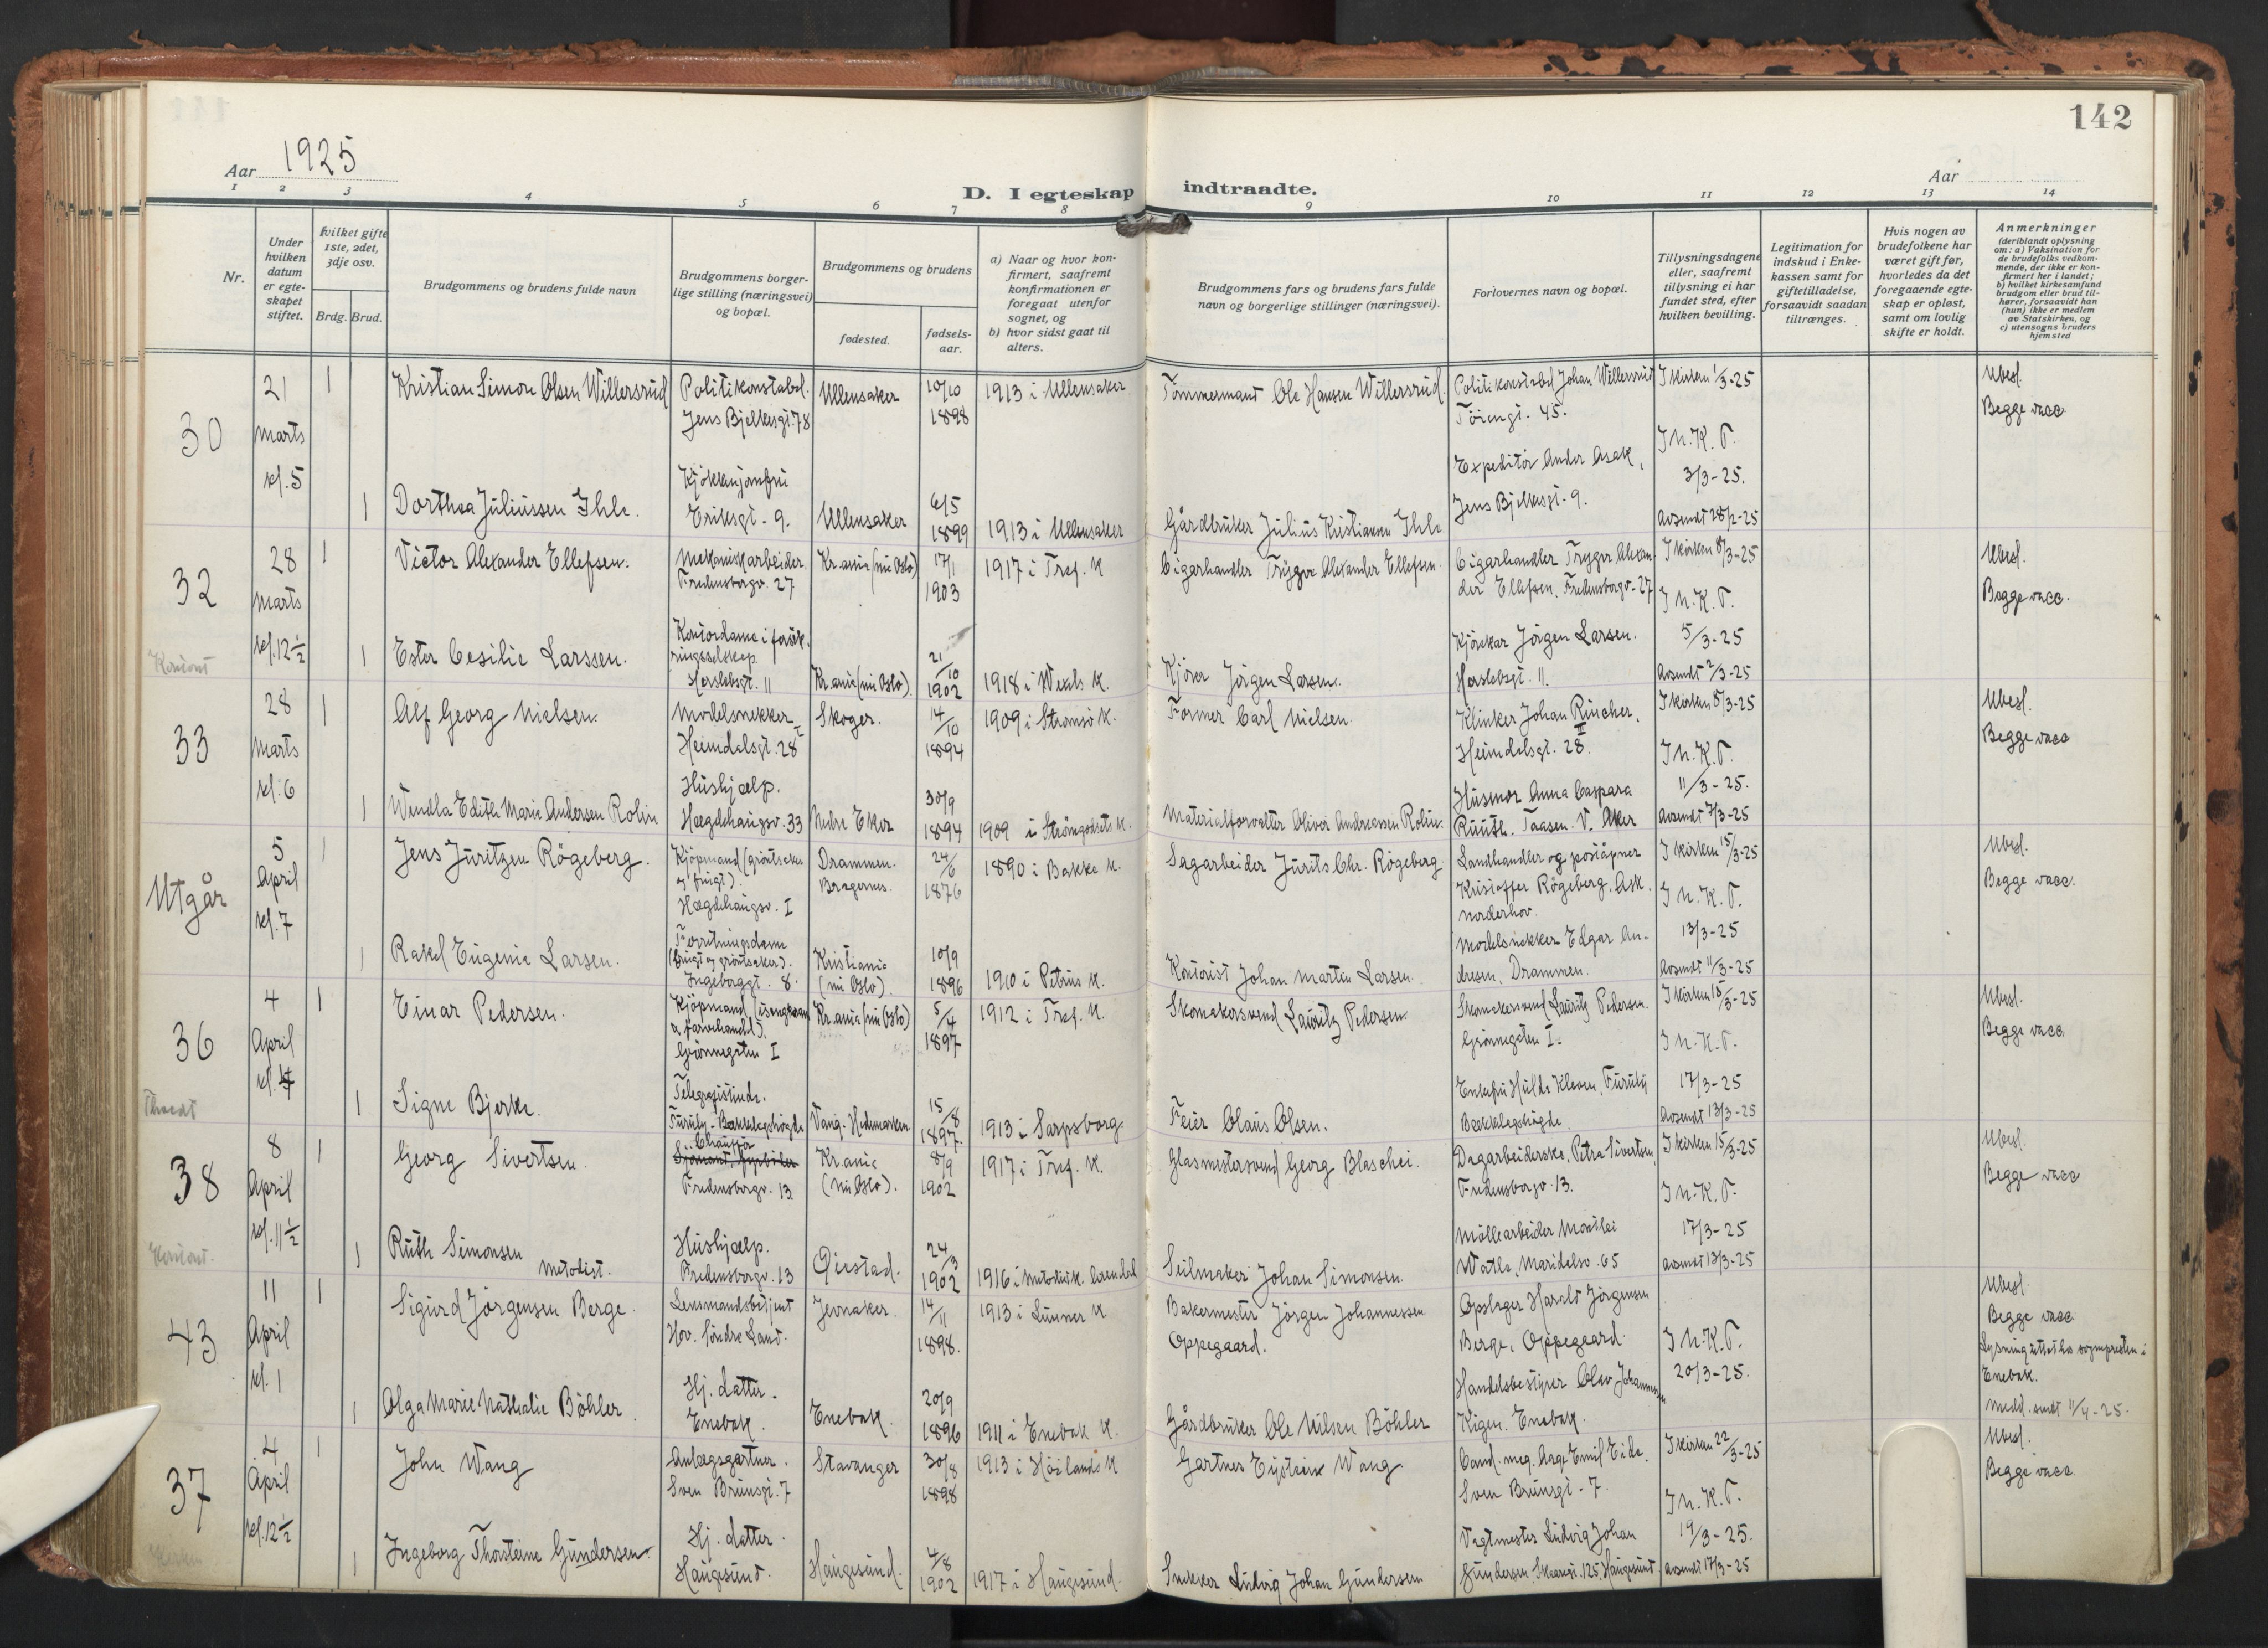 142
Aar 1925
Aar
D. I egteskap indtraadte.
1 2 3 4 5 6 7 8 9 10 11 12 13 14
Nr.
Under hvilken datum er egteskapet stiftet.
Hvilket gifte 1ste, 2det, 3dje osv.
Brdg. Brud.
Brudgommens og brudens fulde navn
Brudgommens borgerlige stilling (næringsvei) og bopæl.
Brudgommens og brudens
fødested.
fødselsaar.
a) Naar og hvor konfirmert, saafremt konfirmationen er foregaat utenfor sognet, og
b) hvor sidst gaat til alters.
Brudgommens fars og brudens fars fulde navn og borgerlige stillinger (næringsvei).
Forlovernes navn og bopæl.
Tillysningsdagene eller, saafremt tillysning ei har fundet sted, efter hvilken bevilling.
Legitimation for indskud i Enkekassen samt for giftetilladelse, forsaavidt saadan tiltrænges.
Hvis nogen av brudefolkene har været gift før, hvorledes da det foregaaende egteskap er opløst, samt om lovlig skifte er holdt.
Anmerkninger
(deriblandt oplysning om: a) Vaksination for de brudefolks vedkommende, der ikke er konfirmert her i landet;
b) hvilket kirkesamfund brudgom eller brud tilhører, forsaavidt han (hun) ikke er medlem av Statskirken, og
c) utensogns bruders hjemsted
30
21 Marts kl. 5
1
Kristian Simon Olsen Willersrud
Politikonstabel. Jens Bjelkesgt. 78
Ullensaker
10/10 1898
1913 i Ullensaker
Tømmermand Ole Hansen Willersrud.
Politikonstabel Johan Willersrud
Tøiengt. 45.
I kirken 1/3-25
I N.K.T.
3/3-25.
Avsendt 28/2-25
Ubesl.
Begge vacc.
1
Dorthea Juliussen Ihle.
Kjøkkenjomfru
Eriksgt. 9.
Ullensaker
6/5 1899
1913 i Ullensaker
Gårdbruker Julius Kristiansen Ihle.
Expeditør Ander Asak,
Jens Bjelkesgt. 9.
32
28 Marts kl. 12 1/2
1
Victor Alexander Ellefsen.
Mekaniskarbeider.
Fredensborgv. 27
Kr.ania (nu Oslo)
17/1 1903
1917 i Tref. K
Cigarhandler Trygve Alexander Ellefsen.
Cigarhandler Trygve Alexander Ellefsen, Fredensborgv. 27
I kirken 8/3-25
I N.K.T.
5/3-25
Avsendt 2/3-25
Ubesl.
Begge vacc.
1
Ester Cesilie Larssen.
Kontordame i forsikringsselskap.
Herslebsgt. 11
Kr.ania (nu Oslo).
21/10 1902
1918 i Wexels K.
Kjører Jørgen Larsen.
Kjørekar Jörgen Larsen.
Herslebsgt. 11.
33
28 Marts kl. 6
1
Alf Georg Nielsen.
Modelsnekker
Heimdalsgt. 28 I
Skoger.
14/10 1894
1909 i Strømsø K.
Former Carl Nielsen.
Klinker Johan Rücher.
Heimdalsgt. 28 II
I kirken 8/3-25
I N.K.T.
11/3-25.
Avsendt 7/3-25
Ubesl.
Begge vacc
1
Wendla Edith Marie Andersen Rolin
Hushjælp.
Hægdehaugsv. 33
Nedre Eker
30/9 1894
1909 i Strømgodsets K.
Materialforvalter Oliver Andreassen Rolin.
Husmor Anna Caspara
Ruuth. Taasen. V. Aker
Utgår
5 April kl. 7
1
Jens Juritzen Rögeberg.
Kjøpmand (grøntsaker og frugt).
Hægdehaugsv. I
Drammen.
Bragernes.
24/6 1876
1890 i Bakke K.
Sagarbeider Jurits Chr. Rögeberg
Landhandler og poståpner
Kristoffer Rögeberg. Ask.
Norderhov.
I kirken 15/3-25
I N.K.T.
13/3-25
Avsendt 11/3-25
Ubesl.
Begge vacc.
1
Rakel Eugenie Larsen.
Forretningsdame
(frugt og grøntsaker).
Ingeborggt. 8.
Kristiania
(nu Oslo).
10/9 1896
1910 i Petrus K.
Kontorist Johan Martin Larsen.
Modelsnekker Edgar Andresen, Drammen.
36
4 April kl. 4
1
Einar Pedersen.
Kjøpmand (isenkram & farvehandel).
Grønnegaten I
Kr.ania (nu Oslo)
5/4 1897
1912 i Tref. K.
Skomakersvend Lauritz Pedersen.
Skomakersvend Lauritz Pedersen.
Grønnegaten I.
I kirken 15/3-25
I N.K.T.
17/3-25
Avsendt 13/3-25
Ubesl.
Begge vacc.
1
Signe Bjerke.
Telegrafistinde.
Furuly - Bækkelagshøgda
Vang. Hedemarken
15/8 1897.
1913 i Sarpsborg
Feier Olaus Olsen.
Enkefru Hulda Kleven, Furuly
Bækkelagshøgda.
38
8 April kl. 11 1/2
1
Georg Sivertsen.
Chauffør
Fredensborgv. 13
Kr.ania
(nu Oslo).
8/9 1902
1917 i Tref. K.
Glasmestersvend Georg Blaschei.
Dagarbeiderske, Petra Sivertsen,
Fredensborgv. 13.
I kirken 15/3-25
I N.K.T.
17/3-25
avsendt 13/3-25
Ubesl.
Begge vacc
1
Ruth Simonsen
Metodist.
Hushjælp.
Fredensborgv. 13
Øiestad.
24/3 1902
1916 i Metodistk. Arendal
Seilmaker Johan Simonsen.
Møllearbeider
Maridalsv. 65
43
11 April kl. 1
1
Sigurd Jörgensen Berge.
Lensmandsbetjent
Hov. Søndre Land.
Jevnaker.
14/11 1898.
1913 i Lunner K
Bakermester Jörgen Johannessen
Oppegaard.
Opslager Harald Jörgensen
Berge, Oppegaard.
I N.K.T.
20/3-25.
Ubesl.
Begge vacc
Lysningsattest fra sognepresten i
Enebak.
medd. sendt 11/4-25.
1
Olga Marie Nathalie Böhler
Hj. datter.
Enebak.
Enebak.
20/9 1896
1911 i Enebak K.
Gårdbruker Ole Nilsen Böhler
Handelsbestyrer Olav Johannessen
Kigen. Enebak.
37
4 April kl. 12 1/2
1
John Wang
Anlægsgartner.
Sven Brunsgt. 7
Stavanger
30/8 1898
1913 i Høilands K
Gartner Eystein Wang.
Cand. mag. Aage Emil Eide.
Sven Brunsgt. 7.
I kirken 22/3-25
I N.K.T.
19/3-25.
Avsendt 17/3-25
Ubesl.
Begge vacc.
1
Ingeborg Thorsteine Gundersen
Hj. datter.
Haugesund.
Haugesund.
4/8 1902
1917 i Haugesund.
Snekker Ludvig Johan Gundersen
Vagtmester Ludvig Johan
Gundersen, 125, Haugesund.